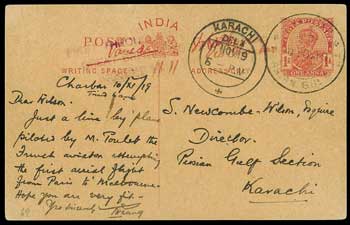 INDIA
POST
WRITING SPACE
ADDRESS
KARACHI
DELY
ONE ANNA
Charbar 10/XI/19
Dear Robson.
Just a line by plane
piloted by M. Poulet the
French aviator attempting
the first aerial flight
from Paris to Melbourne.
Hope you are very fit.
Yrs sincerely
S. Newcombe-Wilson, Esquire
Director.
Persian Gulf Section
Karachi